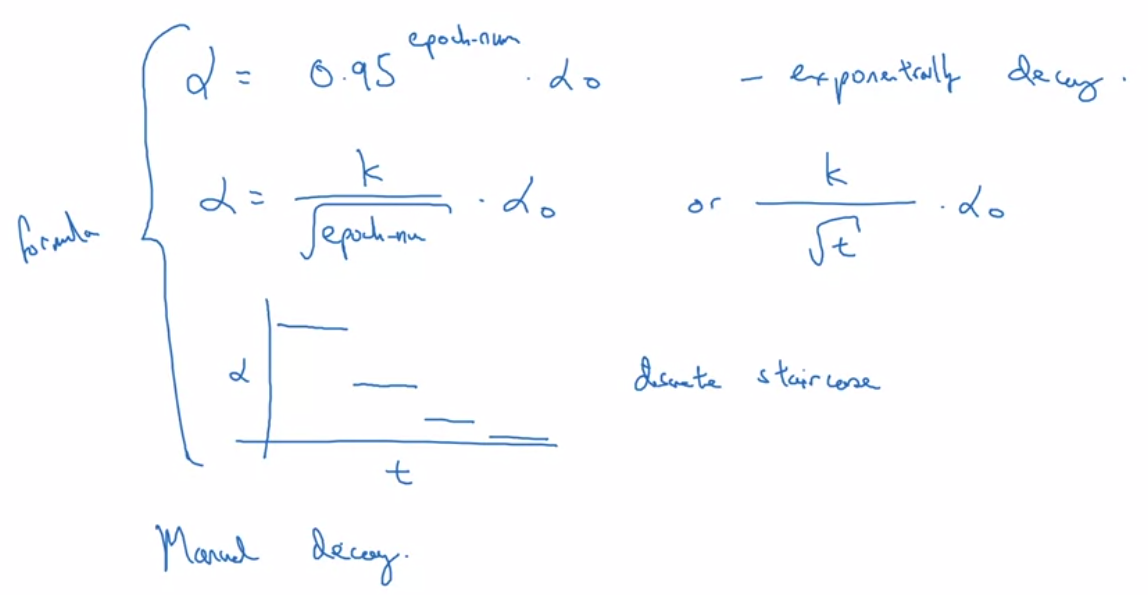 α = 0.95^epoch-num · α₀ - exponentially decay.
α = k/√epoch-num · α₀ or k/√t · α₀
formula
α
discrete staircase
t
Manual decay.